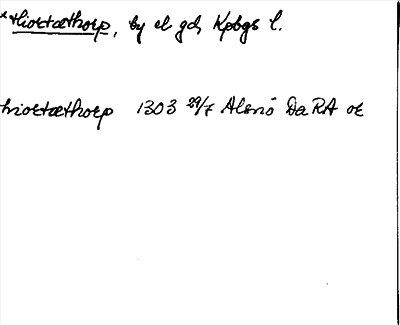 *Hiortæthorp, by el gd, Kpbgs l.
hiortæthorp 1303 29/7 Alsnö DaRA or